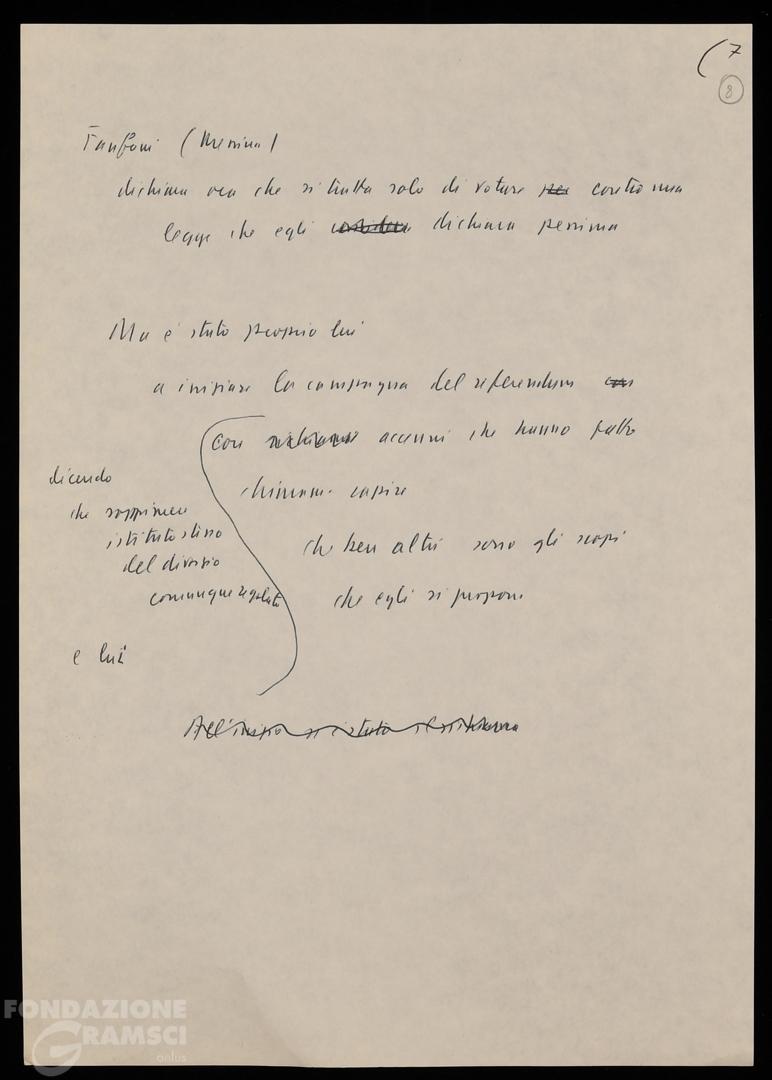 (7
8
Fanfani (Messina)
dichiara ora che si tratta solo di votare per contro una
legge che egli dichiara pessima
Ma è stato proprio lui
a iniziare la campagna del referendum con
con accenni che hanno fatto
chiaram. capire
ch ben altri sono gli scopi
che egli si propone
dicendo
che sopprimere
istituto stesso
del divorzio
comunque regolato
e lui
All'inizio si è
FONDAZIONE
GRAMSCI
onlus